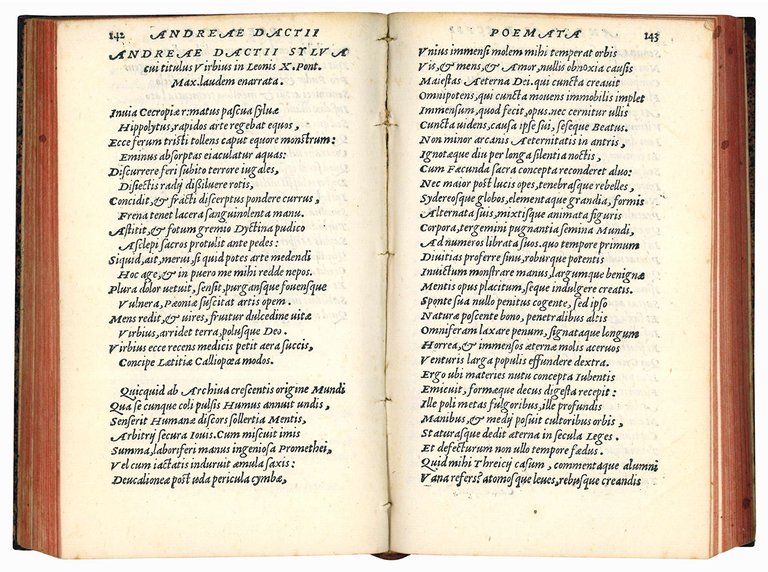 142 ANDREAE DACTII
ANDREAE DACTII SYLVA
cui titulus Virbius in Leonis X. Pont.
Max. laudem enarrata.
Inuia Cecropiæ r: matus pascua syluæ
Hippolytus, rapidos arte regebat equos,
Ecce ferum tristi tollens caput equore monstrum:
Eminus absorptas eiaculatur aquas:
Discurrere feri subito terrore iugales,
Disiectis radij dissiluere rotis,
Concidit, & fracti discerptus pondere currus,
Frena tenet lacera sanguinolenta manu.
Astitit, & fotum gremio Dyctina pudico
Asclepi sacros protulit ante pedes:
Siquid, ait, merui, si quid potes arte medendi
Hoc age, & in puero me mihi redde nepos.
Plura dolor uetuit, sensit, purgansque fouensque
Vulnera, Pæoniæ suscitat artis opem.
Mens redit, & uires, fruitur dulcedine uitæ
Virbius, arridet terra, polusque Deo.
Virbius ecce recens medicis petit aera succis,
Concipe Lætitiæ Calliopœa modos.
Quicquid ab Archiua crescentis origine Mundi
Qua se cunque coli pulsis Humus annuit undis,
Senserit Humanæ discors sollertia Mentis,
Arbitrij secura Iouis. Cum miscuit imis
Summa, laboriferi manus ingeniosa Promethei,
Vel cum iactatis induruit æmula saxis:
Deucalioneæ post uda pericula cymbæ,
POEMATA 143
Vnius immensi molem mihi temperat orbis
Vis, & mens, & Amor, nullis obnoxia causis
Maiestas Aeterna Dei. qui cuncta creauit
Omnipotens, qui cuncta mouens immobilis implet
Immensum, quod fecit, opus. nec cernitur ullis
Cuncta uidens, causa ipse sui, seseque Beatus.
Non minor arcanis Aeternitatis in antris,
Ignotæque diu per longa silentia noctis,
Cum Fæcunda sacra concepta reconderet aluo:
Nec maior post lucis opes, tenebrasque rebelles,
Sydereosque globos, elementaque grandia, formis
Alternata suis, mixtisque animata figuris
Corpora, tergemini pugnantia semina Mundi,
Ad numeros librata suos. quo tempore primum
Diuitias proferre sinu, roburque potentis
Inuictum monstrare manus, largumque benignæ
Mentis opus placitum, seque indulgere creatis.
Sponte sua nullo penitus cogente, sed ipso
Naturæ poscente bono, penetralibus altis
Omniferam laxare penum, signataque longum
Horrea, & immensos æternæ molis aceruos
Venturis larga populis effundere dextra.
Ergo ubi materies nutu concepta Iubentis
Emicuit, formæque decus digesta recepit:
Ille poli metas fulgoribus, ille profundis
Manibus, & medij posuit cultoribus orbis,
Staturasque dedit æterna in secula Leges.
Et defecturum non ullo tempore fædus.
Quid mihi Threicij casum, commentaque alumni
Vana refers? atomosque leues, rebusque creandis